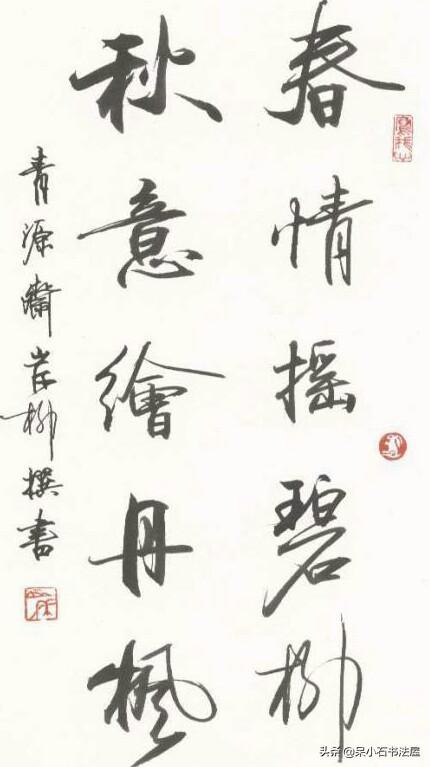 春情搖碧柳
秋意繪丹楓
青源齋岸柳撰書
头条@呆小石书法屋